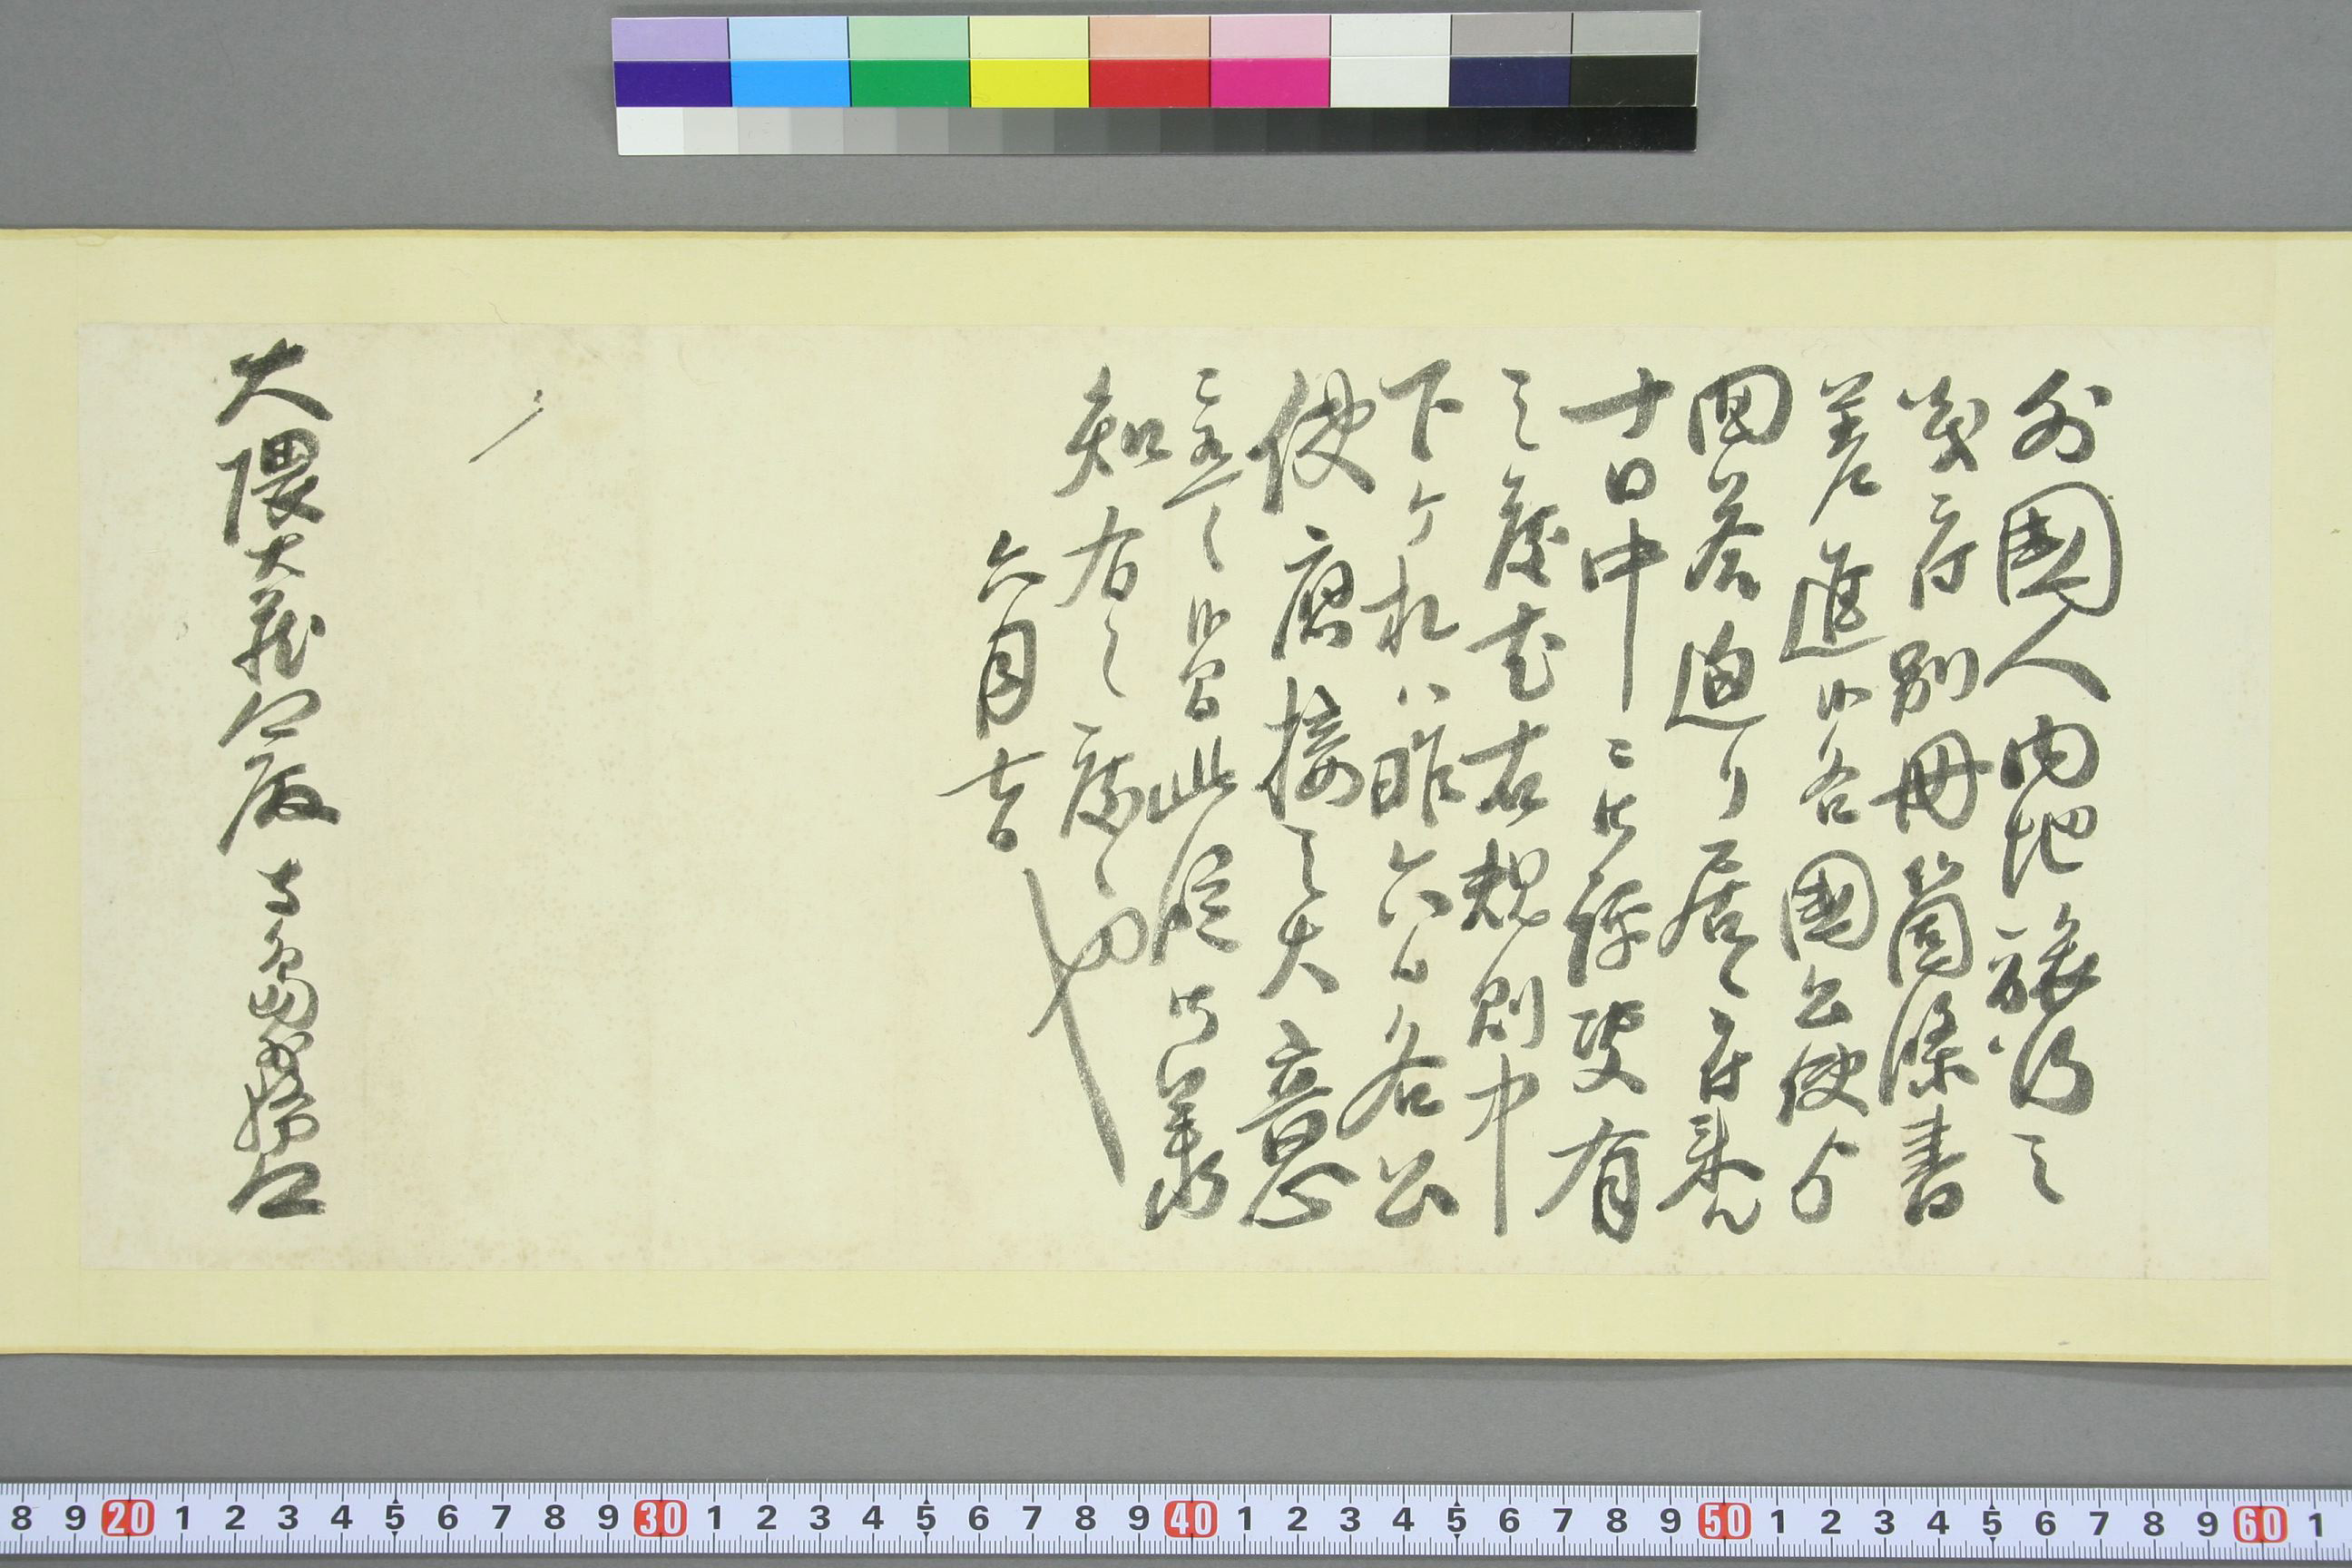 外國人内地旅行之
義ニ付別冊箇條書
差進候各國公使ゟ
回答廻り居候付来ル
十日中ニ御評決有
之度尤右規則中
下ケ札ハ昨六日各公
使應接之大意
ニ有之候間此段御承
知有之度候也
六月七日
大隈大蔵卿殿 寺島外務卿
8 9 20 1 2 3 4 5 6 7 8 9 30 1 2 3 4 5 6 7 8 9 40 1 2 3 4 5 6 7 8 9 50 1 2 3 4 5 6 7 8 9 60 1